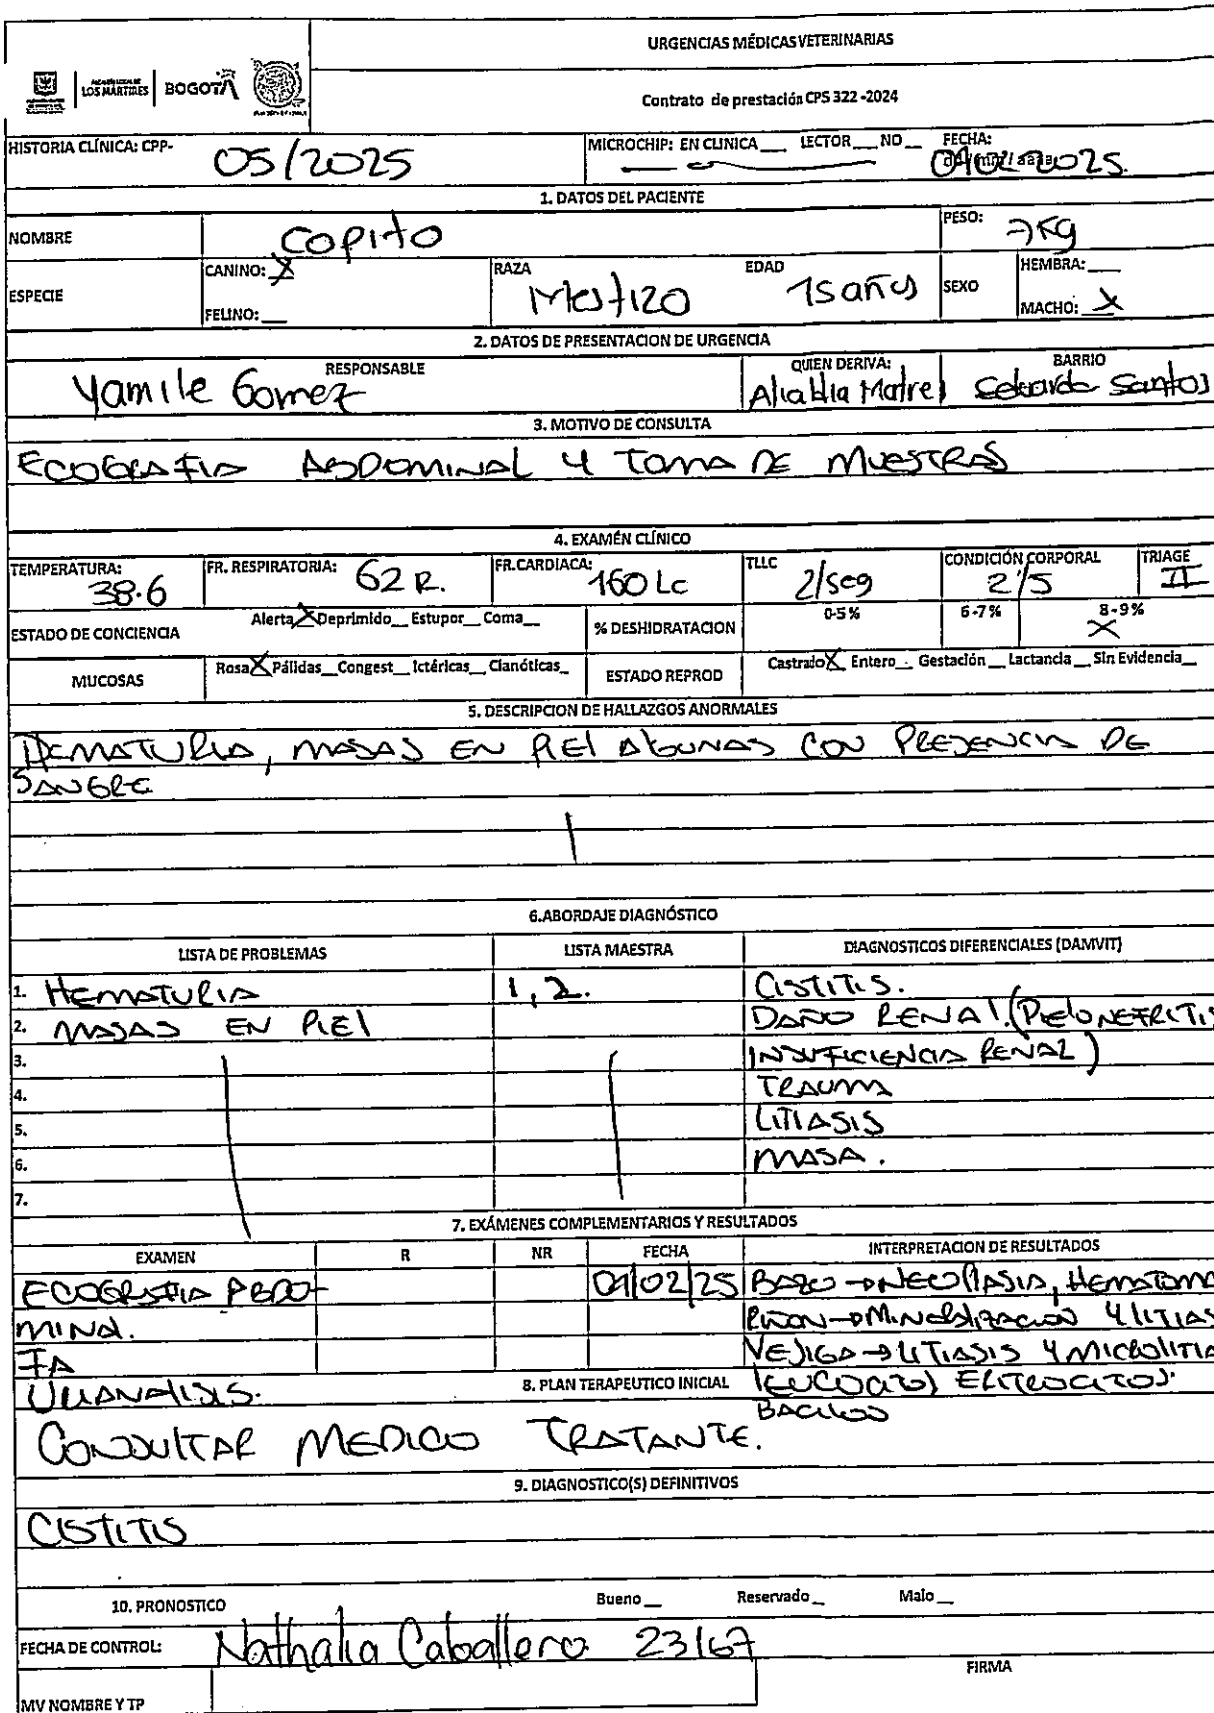 URGENCIAS MÉDICAS VETERINARIAS
LOS MÁRTIRES BOGOTÁ
Contrato de prestación CPS 322 -2024
HISTORIA CLÍNICA: CPP- 05/2025 MICROCHIP: EN CLINICA___ LECTOR___NO__ FECHA: 2025.
1. DATOS DEL PACIENTE
NOMBRE Copito PESO: 7Kg
ESPECIE CANINO: X RAZA Mestizo EDAD 15 años SEXO HEMBRA:___
FELINO:__ MACHO: X
2. DATOS DE PRESENTACION DE URGENCIA
RESPONSABLE QUIEN DERIVA: BARRIO
Yamile Gomez Santos
3. MOTIVO DE CONSULTA
ECOGRAFIA ABDOMINAL Y TOMA DE MUESTRAS
4. EXAMÉN CLÍNICO
TEMPERATURA: 38.6 FR. RESPIRATORIA: 62 R. FR.CARDIACA: 160 Lc TLLC 2/seg CONDICIÓN CORPORAL 2/5 TRIAGE II
ESTADO DE CONCIENCIA Alerta X Deprimido__ Estupor__ Coma__ % DESHIDRATACION 0-5% 6-7% 8-9% X
MUCOSAS Rosa X Pálidas__ Congest__ Ictéricas__ Cianóticas_ ESTADO REPROD Castrado X Entero__ Gestación __ Lactancia __ Sin Evidencia__
5. DESCRIPCION DE HALLAZGOS ANORMALES
HEMATURIA, MASAS EN PIEL ALGUNAS CON PRESENCIA DE
SANGRE
6.ABORDAJE DIAGNÓSTICO
LISTA DE PROBLEMAS LISTA MAESTRA DIAGNOSTICOS DIFERENCIALES (DAMVIT)
1. HEMATURIA 1, 2. CISTITIS.
2. MASAS EN PIEL DAÑO RENAL. (PIELONEFRITIS
3. INSUFICIENCIA RENAL)
4. TRAUMA
5. LITIASIS
6. MASA.
7.
7. EXÁMENES COMPLEMENTARIOS Y RESULTADOS
EXAMEN R NR FECHA INTERPRETACION DE RESULTADOS
ECOGRAFIA ABDO- 01/02/25 BAZO → NEOPLASIA, HEMATOMA
MINAL. RIÑON → MINERALIZACION Y LITIAS
FA VEJIGA → LITIASIS Y MICROLITIA
URIANALISIS. LEUCOCITOS ERITROCITOS.
BACILOS
8. PLAN TERAPEUTICO INICIAL
CONSULTAR MEDICO TRATANTE.
9. DIAGNOSTICO(S) DEFINITIVOS
CISTITIS
10. PRONOSTICO Bueno__ Reservado__ Malo__
FECHA DE CONTROL: Nathalia Caballero 23167
FIRMA
MV NOMBRE Y TP